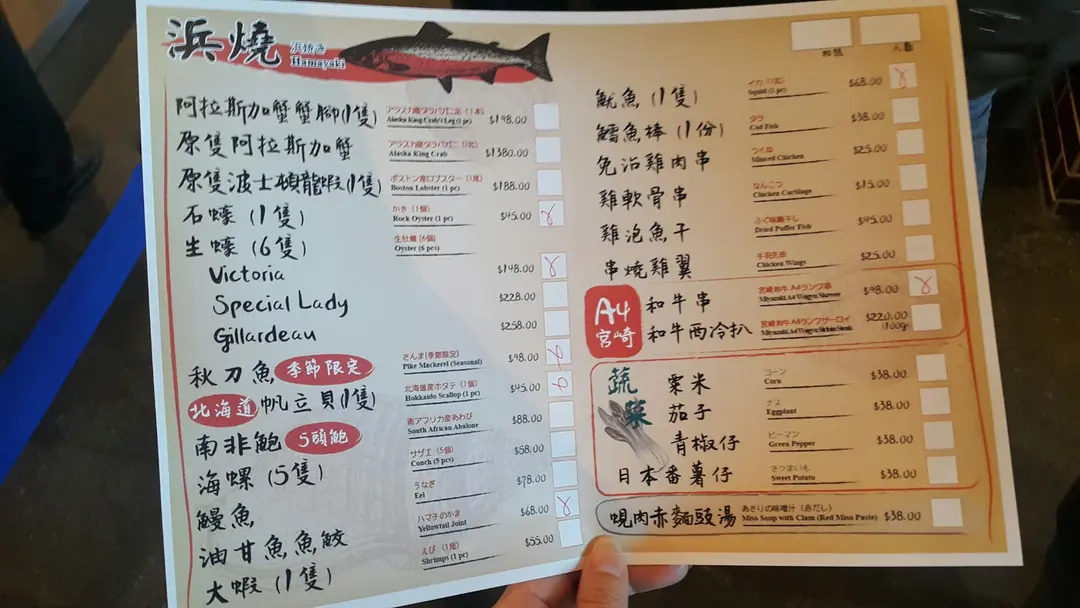 浜燒
浜焼き
Hamayaki
阿拉斯加蟹蟹腳(1隻)
アラスカ産タラバガニ足（1本）
Alaska King Crab's Leg (1 pc)
$198.00
原隻阿拉斯加蟹
Alaska King Crab
$1380.00
原隻波士頓龍蝦(1隻)
ボストン産ロブスター（1尾）
Boston Lobster (1 pc)
$188.00
石蠔 (1隻)
かき（1個）
Rock Oyster (1 pc)
$45.00
生蠔 (6隻)
生牡蠣 (6個)
Oyster (6 pcs)
Victoria
$148.00
Special Lady
$228.00
Gillardeau
$258.00
秋刀魚 季節限定
さんま(季節限定)
Pike Mackerel (Seasonal)
$98.00
北海道 帆立貝(1隻)
北海道産ホタテ（1個）
Hokkaido Scallop (1 pc)
$45.00
南非鮑 5頭鮑
南アフリカ産あわび
South African Abalone
$88.00
海螺 (5隻)
サザエ（5個）
Conch (5 pcs)
$58.00
鰻魚
うなぎ
Eel
$78.00
油甘魚魚鮫
ハマチのかま
Yellowtail Joint
$68.00
大蝦 (1隻)
えび（1尾）
Shrimps (1 pc)
$55.00
人數
魷魚 (1隻)
Squid (1 pc)
$68.00
鱈魚棒 (1份)
タラ
Cod Fish
$38.00
免治雞肉串
つくね
Minced Chicken
$25.00
雞軟骨串
なんこつ
Chicken Cartilage
$15.00
雞泡魚干
ふぐ味醂干し
Dried Puffer Fish
$45.00
串燒雞翼
手羽先串
Chicken Wings
$25.00
A4
宮崎
和牛串
宮崎和牛A4ランク串
Miyazaki A4 Wagyu Skewer
$98.00
和牛西冷扒
宮崎和牛A4ランクサーロイン
Miyazaki A4 Wagyu Sirloin Steak
$220.00
/100g
蔬菜
粟米
コーン
Corn
$38.00
茄子
ナス
Eggplant
$38.00
青椒仔
ピーマン
Green Pepper
$38.00
日本番薯仔
さつまいも
Sweet Potato
$38.00
蜆肉赤麵豉湯
あさりの味噌汁（赤だし）
Miso Soup with Clam (Red Miso Paste)
$38.00